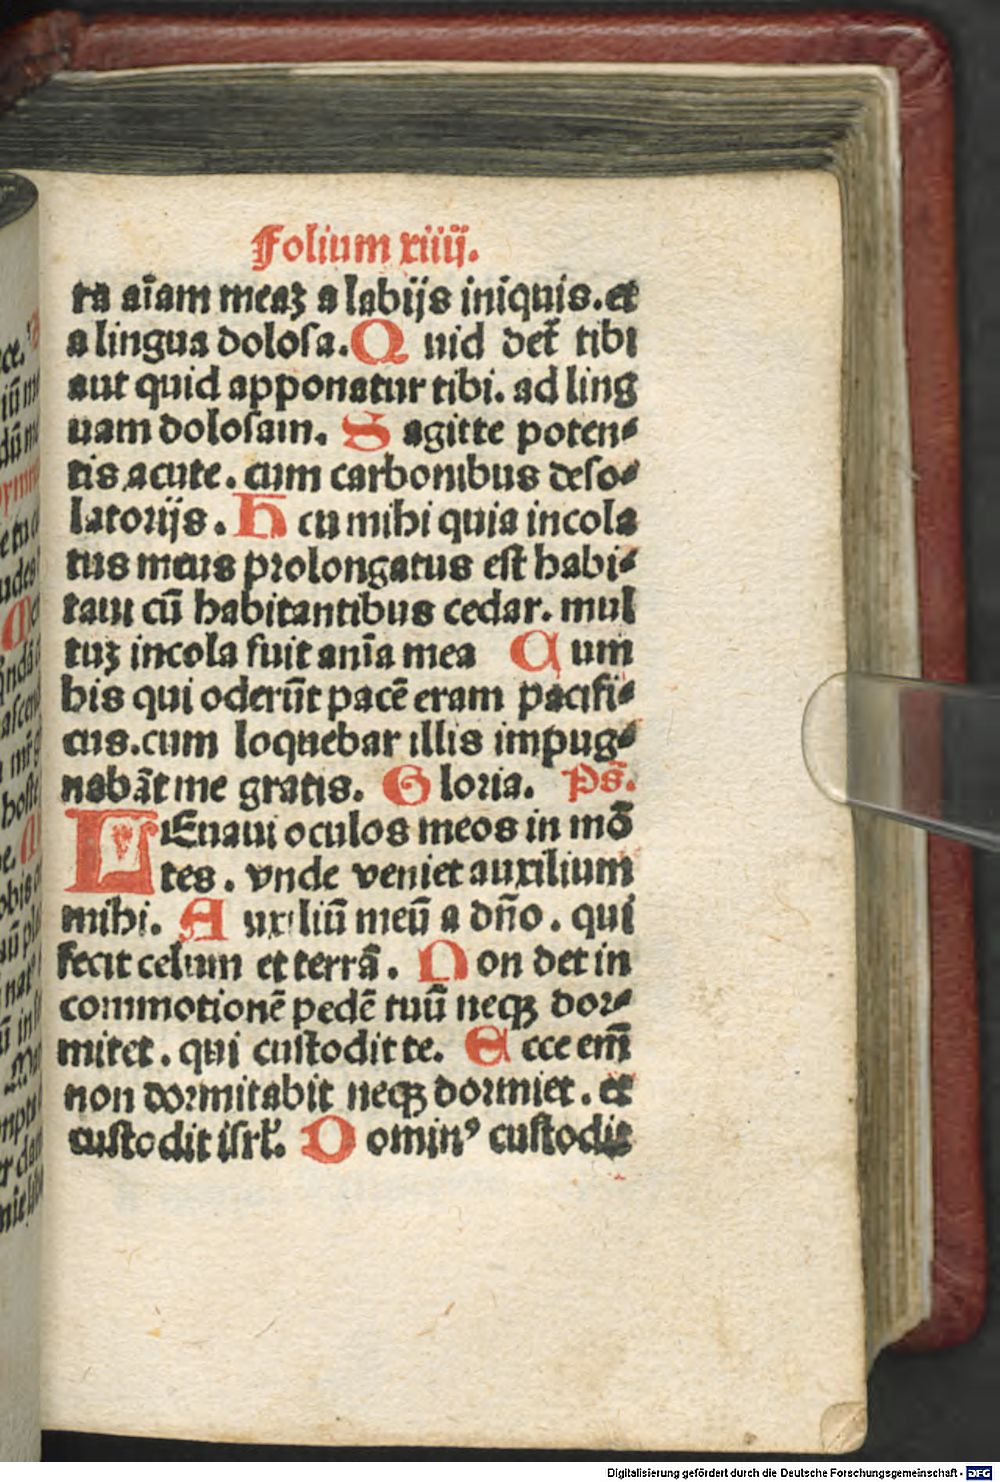 Folium xiiij.
ra aīam meaꝫ a labijs iniquis. et
a lingua dolosa. Quid det̄ tibi
aut quid apponatur tibi. ad ling
uam dolosam. Sagitte poten⸗
tis acute. cum carbonibus deso⸗
latorijs. Heu mihi quia incola
tus meus prolongatus est habi⸗
taui cū habitantibus cedar. mul
tuꝫ incola fuit anīa mea Cum
his qui oderūt pacē eram pacifi⸗
cus. cum loquebar illis impug⸗
nabāt me gratis. Gloria. Ps̄.
LEuaui oculos meos in mō
tes. vnde veniet auxilium
mihi. Auxiliū meū a dn̄o. qui
fecit celum et terrā. Non det in
commotionē pedē tuū neqꝫ dor⸗
mitet. qui custodit te. Ecce em̄
non dormitabit neqꝫ dormiet. et
custodit isrl̓. Dominꝰ custodit
Digitalisierung gefördert durch die Deutsche Forschungsgemeinschaft - DFG